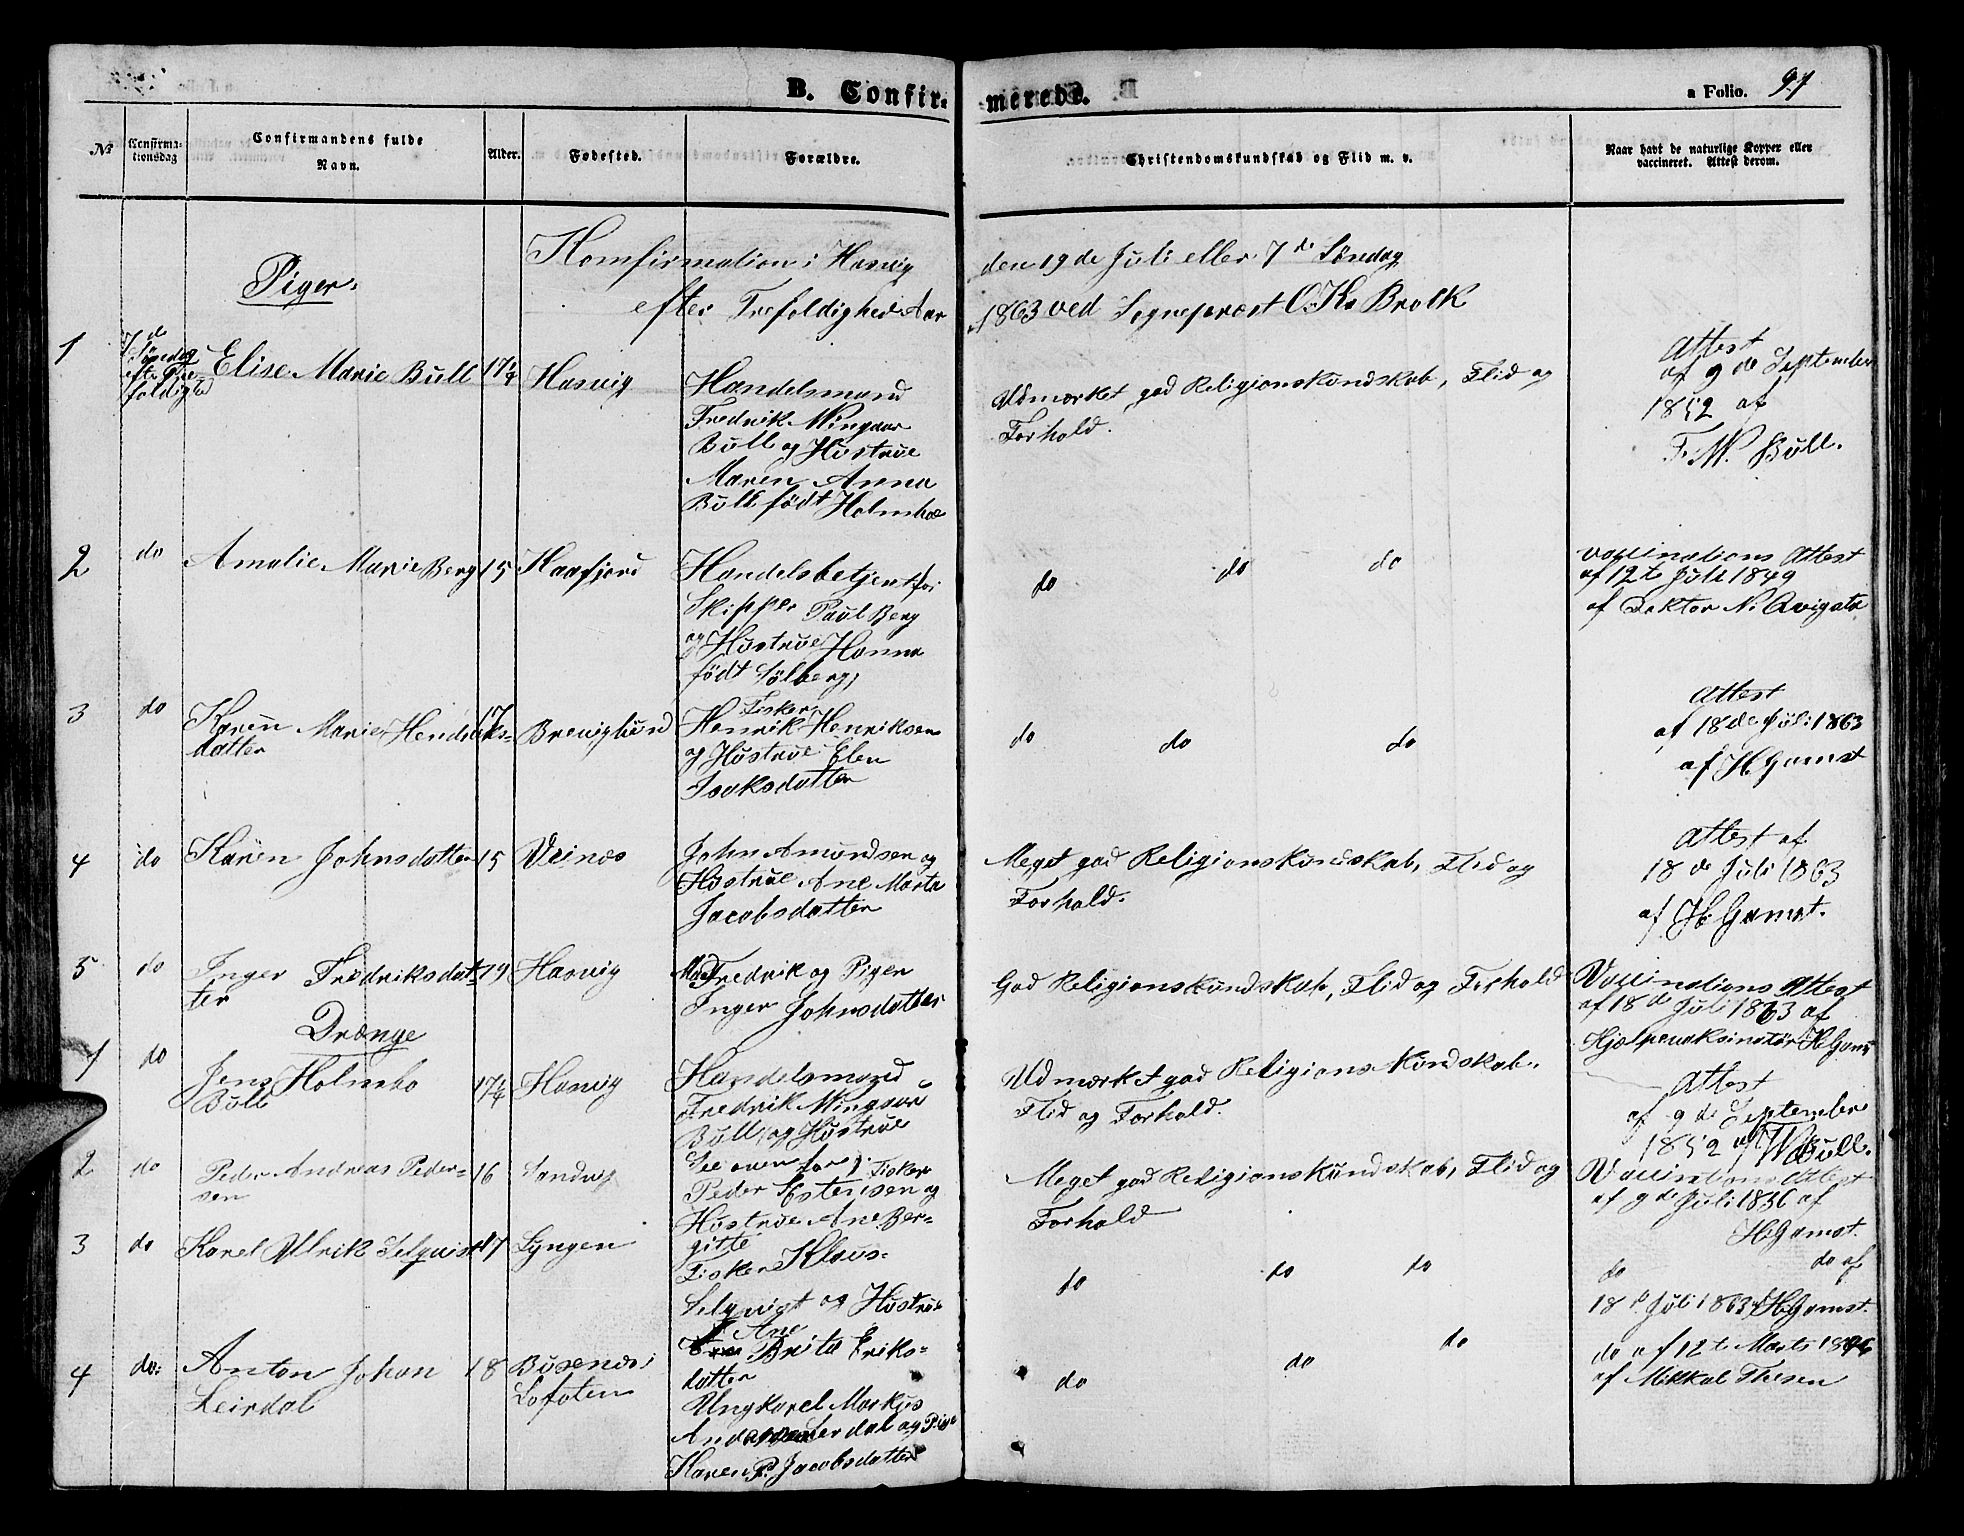 B. Confirmerede.
a Folio. 97
No
Confirmationsdag
Confirmandens fulde Navn.
Alder.
Fødested.
Forældre.
Christendomskundskab og Flid m. v.
Naar havt de naturlige Kopper eller vaccineret. Attest derom.
Komfirmation i Hasvig den 19de Juli eller 7de Söndag
efter Trefoldighed Aar 1863 ved Sogneprest O. Ks Brolk
Piger.
1
7de Söndag efter Trefoldighed
Elise Marie Bull
17 1/4
Hasvig
Handelsmand
Fredrik Wingaar
Bull og Hustrue
Maren Anna
Bull født Holmboe
Udmærket god Religionskundskab, Flid og
Forhold.
Attest
af 9de September
1852 af
F. W. Bull.
2
do
Amalie Marie Berg
15
Haafjord
Handelsbetjent for
Skipper Paul Berg
og Hustrue Hanna
født Sölberg,
do do do
vaccinations Attest
af 12te Juli 1849
af Doktor N. Qvigstad
3
do
Karen Marie Hendriks-
datter
17
Brevighund
Fisker
Henrik Henriksen
og Hustrue Elen
Isaksdatter
do do do
Attest
af 18de Juli 1863
af H. Gamst
4
do
Karen Johnsdatter
15
Veinæs
John Amundsen og
Hustrue Ane Marta
Jacobsdatter
Meget god Religionskundskab, Flid og
Forhold.
Attest af
18de Juli 1863
af H. Gamst.
5
do
Inger Fredriksdat-
ter
19
Hasvig
Fredrik og Pigen
Inger Johnsdatter
God Religionskundskab, Flid og Forhold
Vaccinations Attest
af 18de Juli 1863 af
Hjælpevaksinatør H. Gamst
Drænge
1
do
Jens Holmbo
Bull
17 1/4
Hasvig
Handelsmand
Fredrik Wingaar
Bull og Hustrue
See ovenfor
Udmærket god Religions Kundskab.
Flid og Forhold.
Attest
af 9de September
1852 af W Bull.
2
do
Peder Andreas Peder-
sen
16
Sandvig
Fisker
Peder Estensen og
Hustrue Ane Ber-
gitte
Meget god Religionskundskab, Flid og
Forhold
Vaccinations Attest
af 9de Juli 1836 af
H. Gamst.
3
do
Karel Ulrik Selqvist
17
Lyngen
Fisker Klaus
Selqvist og Hustrue
Ane
Brita Eriks-
datter
do do do
do do af
18de Juli 1863 af H. Gamst.
4
do:
Anton Johan
Leirdal
18
Busenæs i
Lofoten
Ungkarel Markus
Andersen Lerdal og Pige
Karen P. Jacobsdatter
do do do
do af 12te Marts
af Mikkal Thesen